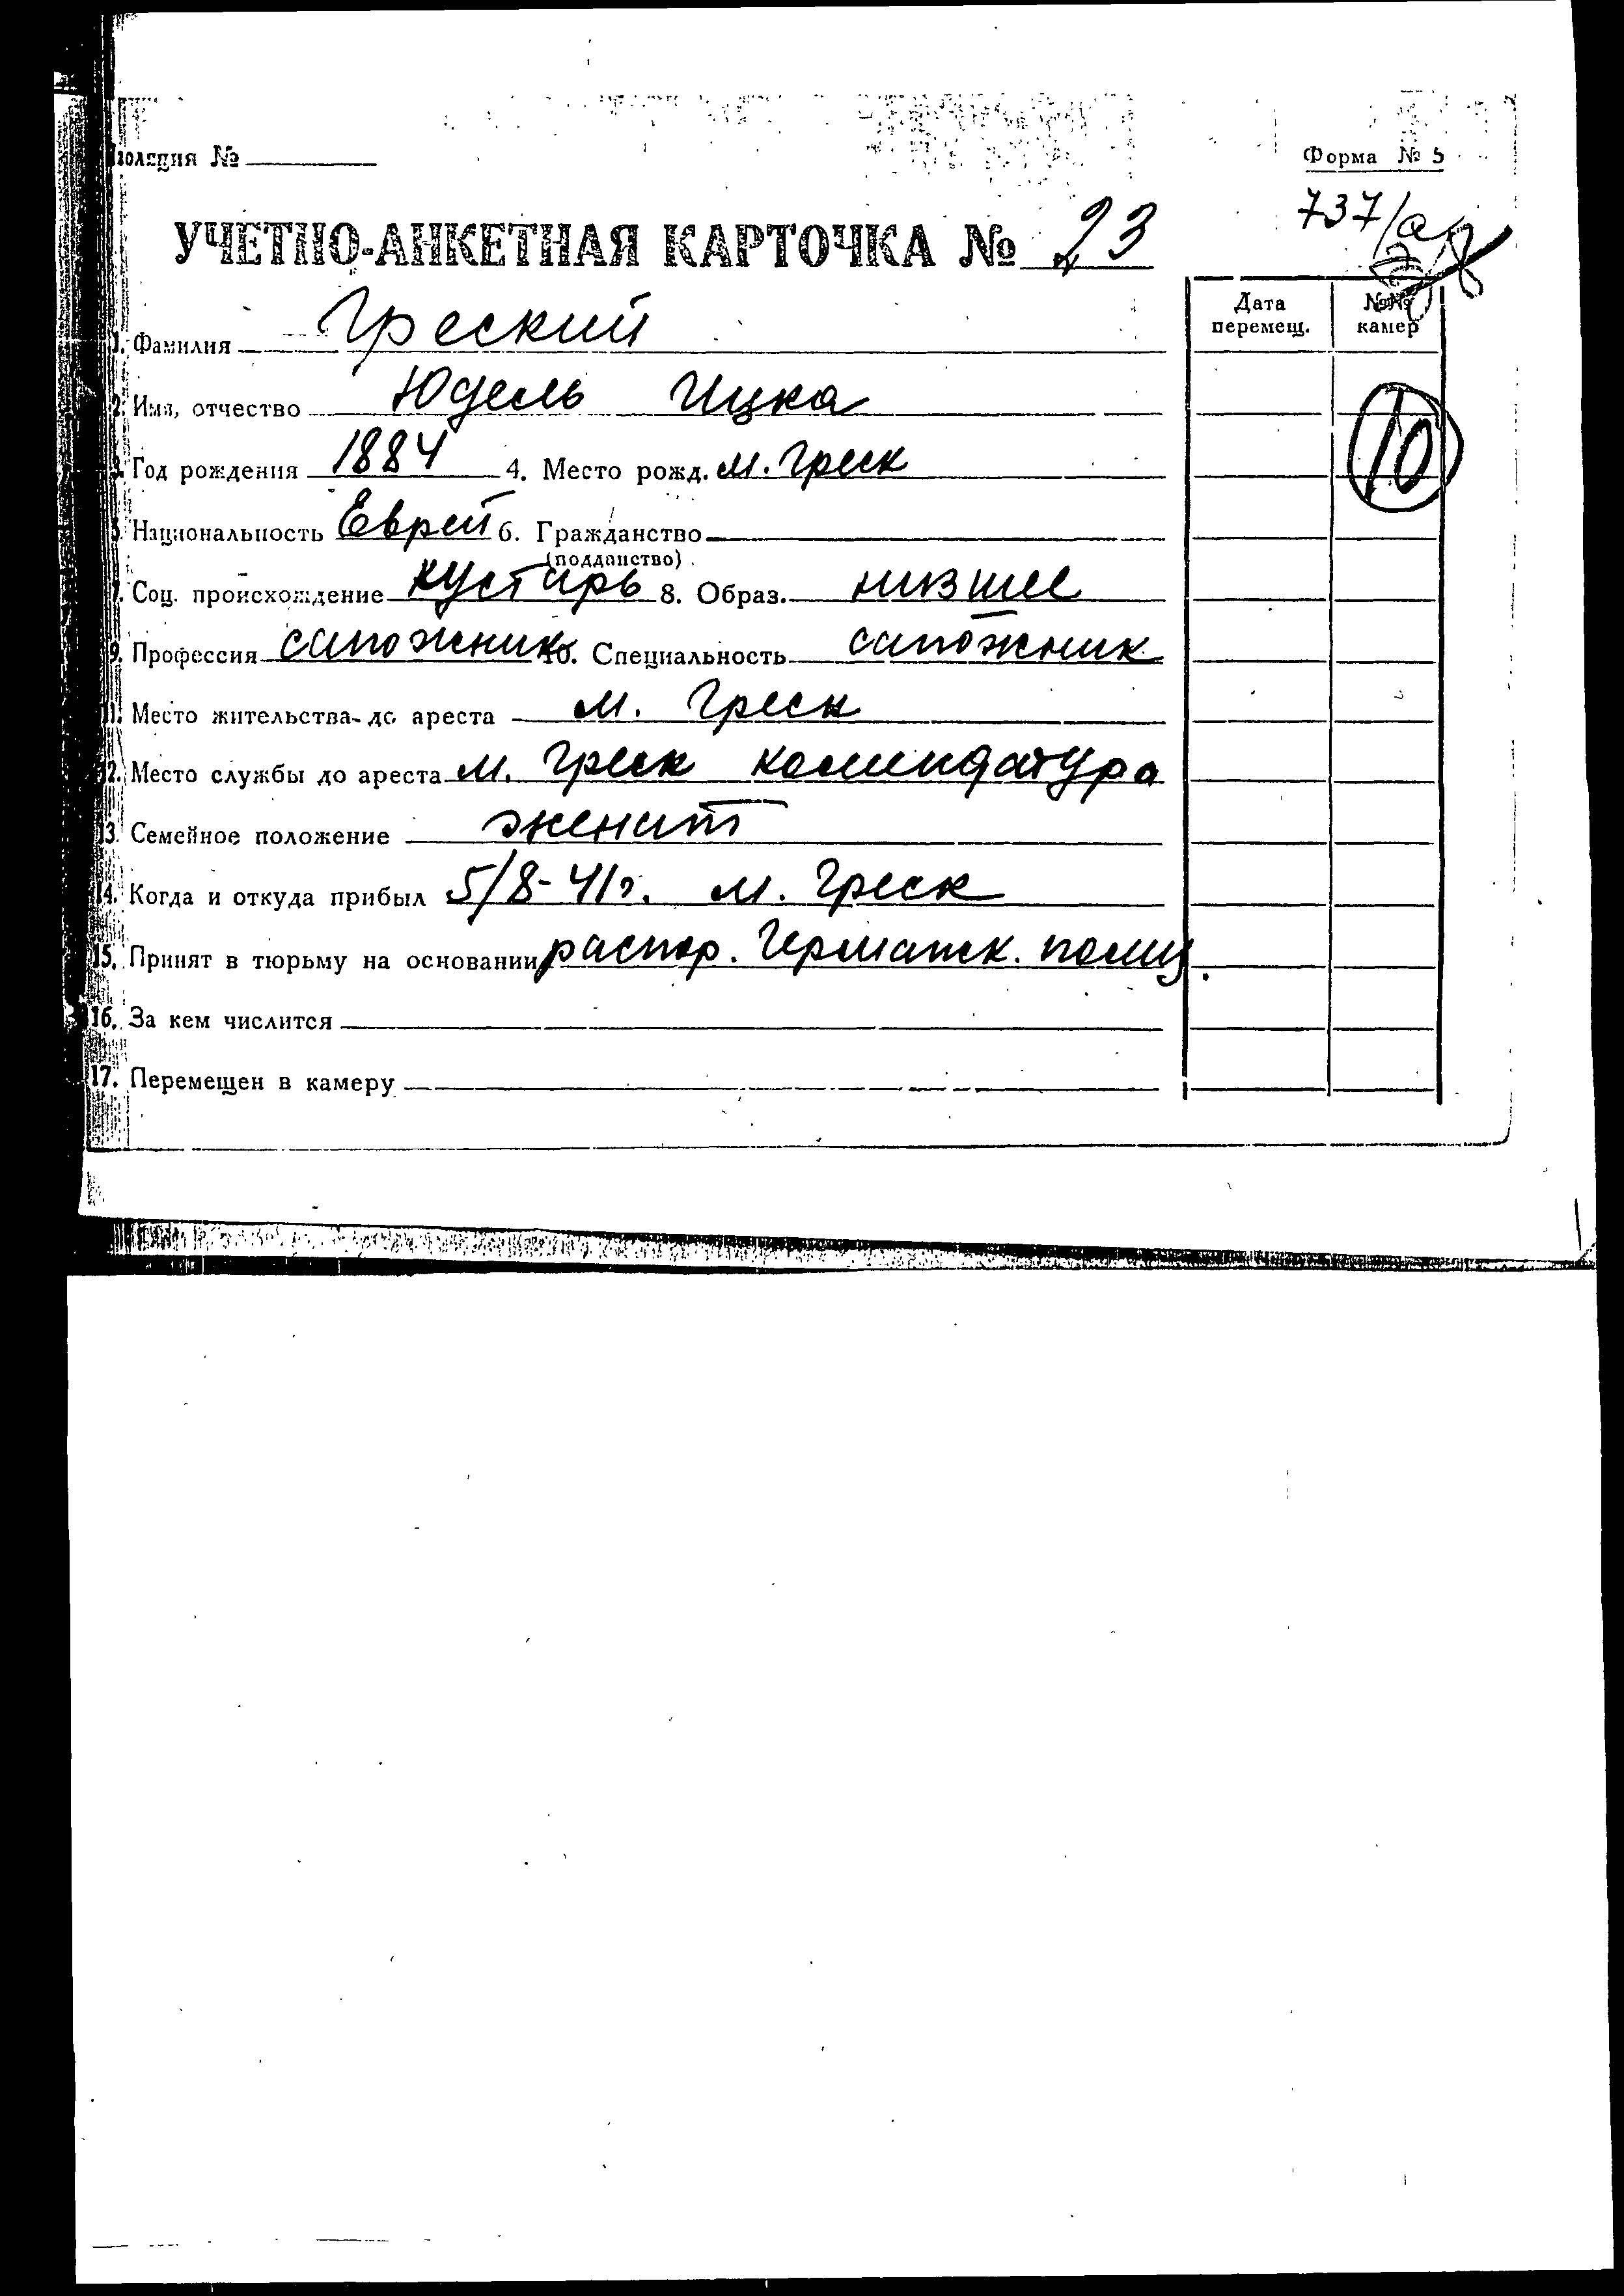 золяция № Форма № 5
737/а
УЧЕТНО-АНКЕТНАЯ КАРТОЧКА № 23
Дата перемещ. №№ камер
1. Фамилия Греский
2. Имя, отчество Юдель Ицка
10
3. Год рождения 1884 4. Место рожд. м. Греск
5. Национальность Еврей 6. Гражданство
(подданство)
7. Соц. происхождение кустарь 8. Образ. низшее
9. Профессия сапожник 10. Специальность сапожник
11. Место жительства до ареста м. Греск
12. Место службы до ареста м. Греск комендатура
13. Семейное положение женат
14. Когда и откуда прибыл 5/8-41г. м. Греск
15. Принят в тюрьму на основании распор. Германск. полиц.
16. За кем числится
17. Перемещен в камеру